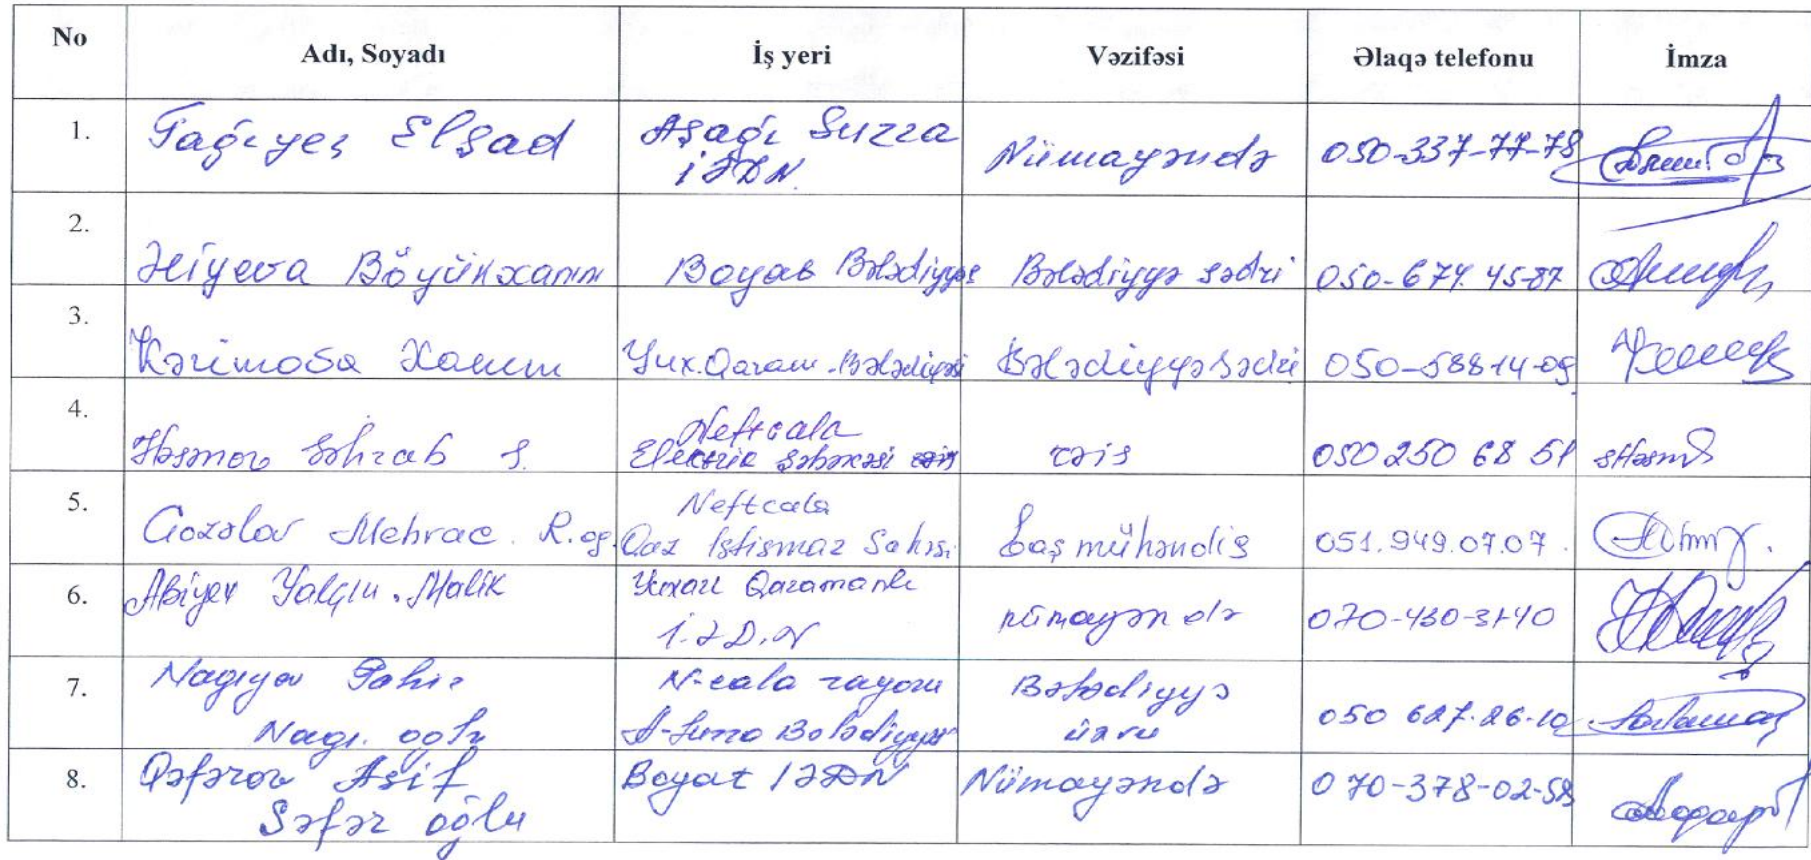 No Adı, Soyadı İş yeri Vəzifəsi Əlaqə telefonu İmza
1. Tağıyev Elşad Aşağı Surra İƏDN. Nümayəndə 050-337-77-78
2. Əliyeva Böyükxanım Boyat Bələdiyyəs Bələdiyyə sədri 050-674.45-87
3. Kərimova Xanım Yux.Qaram.Bələdiyəsi Bələdiyyəsədri 050-588-14-09
4. Həsənov Söhrab S. Neftcala Elektrik Şəbəkəsi rəis 050 250 68 51
5. Gözəlov Mehrac. R.og. Neftcala Qaz İstismar Sahəsi baş mühəndis 051.949.07.07.
6. Abiyev Yalçın. Malik Yuxarı Qaramanlı İ.Ə.D.N nümayəndə 070-430-31-40
7. Nagıyev Tahir
Nagı. oglu N-cala rayonu
A-Surra Bələdiyyəs Bələdiyyə
üzvü 050 627.26-10
8. Qəfərov Asif
Səfər oğlu Boyat İƏDN Nümayəndə 070-378-02-58